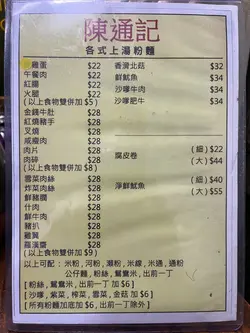 陳通記
各式上湯粉麵
雞蛋 $22
午餐肉 $22
紅腸 $22
火腿 $22
(以上食物雙併加 $5)
金錢牛肚 $28
紅燒豬手 $28
叉燒 $28
咸瘦肉 $28
肉片 $28
肉碎 $28
(以上食物雙併加 $8)
雲菜肉絲 $28
炸菜肉絲 $28
鮮豬膶 $28
什肉 $28
鮮牛肉 $28
豬扒 $28
雞翼 $28
羅漢齋 $28
(以上食物雙併加 $9)
香濃北菇 $34
鮮魷魚 $34
沙嗲牛肉 $34
沙嗲肥牛 $34
腐皮卷 (細) $22
(大) $44
淨鮮魷魚 (細) $40
(大) $55
以上可配 : 米粉, 河粉, 瀨粉, 米線, 米通, 通粉
公仔麵, 粉絲, 鴛鴦米, 出前一丁
[ 粉絲, 鴛鴦米, 出前一丁 加 $6 ]
[ 沙嗲, 紫菜, 榨菜, 雲菜, 金菇 加 $6 ]
[ 所有粉麵加底加 $6 , 出前一丁除外 ]